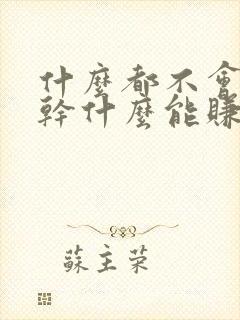 什麼都不會
幹什麼能賺
蘇主荣